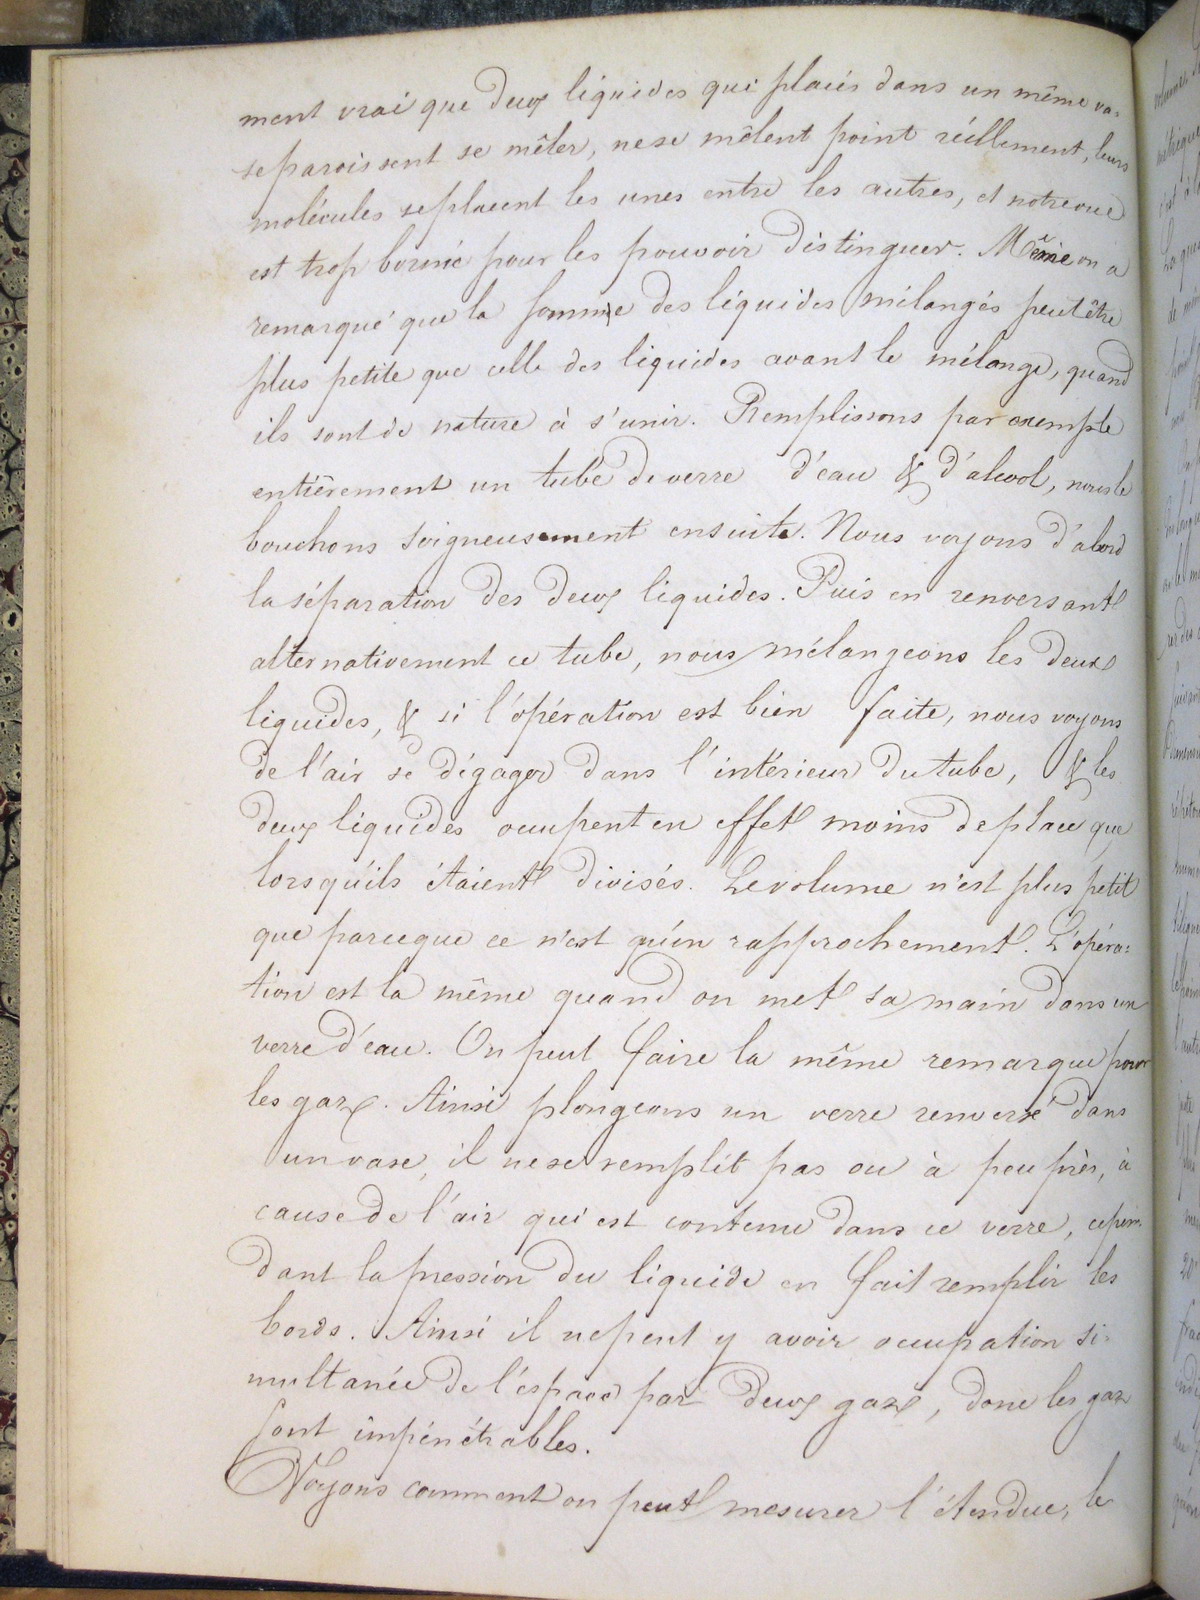 ment vrai que deux liquides qui placés dans un même va-
se paroissent se mêler, ne se mêlent point réellement, leurs
molécules se placent les unes entre les autres, et notre vue
est trop bornée pour les pouvoir distinguer. Même on a
remarqué que la somme des liquides mélangés peut être
plus petite que celle des liquides avant le mélange, quand
ils sont de nature à s'unir. Remplissons par exemple
entièrement un tube de verre d'eau & d'alcool, nous le
bouchons soigneusement ensuite. Nous voyons d'abord
la séparation des deux liquides. Puis en renversant
alternativement ce tube, nous mélangeons les deux
liquides, & si l'opération est bien faite, nous voyons
de l'air se dégager dans l'intérieur du tube, & les
deux liquides occupent en effet moins de place que
lorsqu'ils étaient divisés. Le volume n'est plus petit
que parceque ce n'est qu'un rapprochement. L'opéra-
tion est la même quand on met sa main dans un
verre d'eau. On peut faire la même remarque pour
les gaz. Ainsi plongeons un verre renversé dans
un vase, il ne se remplit pas ou à peu près, à
cause de l'air qui est contenu dans ce verre, cepen-
dant la pression du liquide en fait remplir les
bords. Ainsi il ne peut y avoir occupation si-
multanée de l'espace par deux gaz, donc les gaz
sont impénétrables.
Voyons comment on peut mesurer l'étendue, le